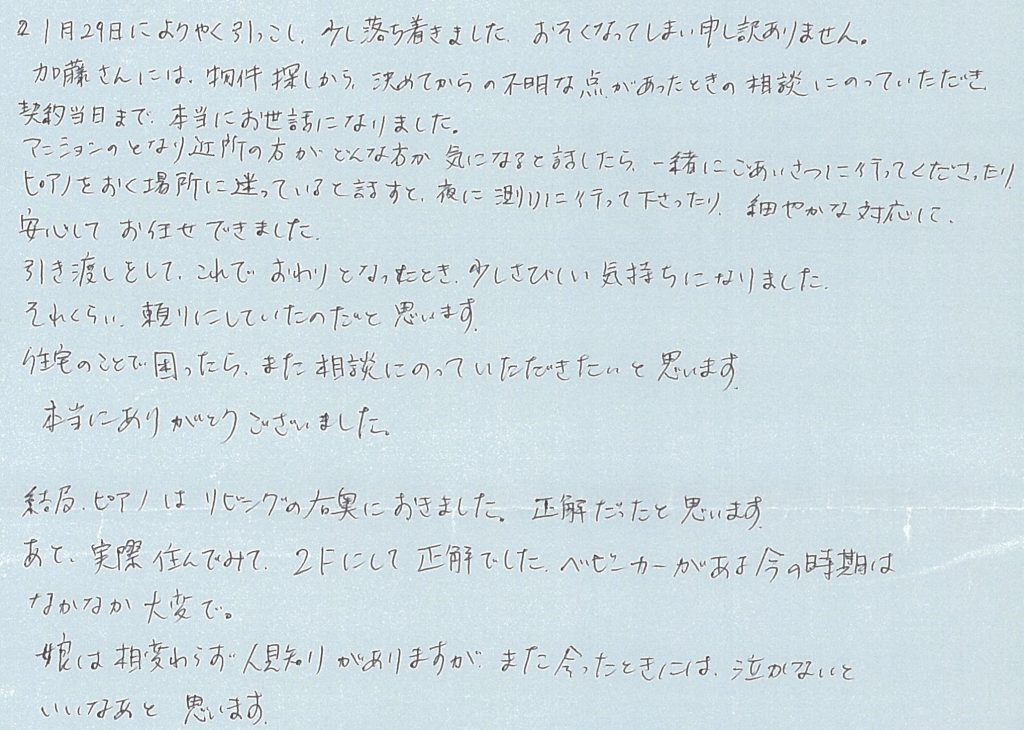 1月29日にようやく引っこし、少し落ち着きました。おそくなってしまい申し訳ありません。
加藤さんには、物件探しから、決めてからの不明な点があったときの相談にのっていただき
契約当日まで、本当にお世話になりました。
マンションのとなり近所の方がどんな方か気になると話したら、一緒にごあいさつに行ってくださったり、
ピアノをおく場所に迷っていると話すと、夜に測りに行って下さったり、細やかな対応に、
安心してお任せできました。
引き渡しをして、これでおわりとなったとき、少しさびしい気持ちになりました。
それくらい、頼りにしていたのだと思います。
住宅のことで困ったら、また相談にのっていただきたいと思います。
本当にありがとうございました。
結局、ピアノはリビングの右奥におきました。正解だったと思います。
あと、実際住んでみて、2Fにして正解でした。ベビーカーがある今の時期は
なかなか大変で。
娘は相変わらず人見知りがありますが、また会ったときには、泣かないと
いいなあと思います。